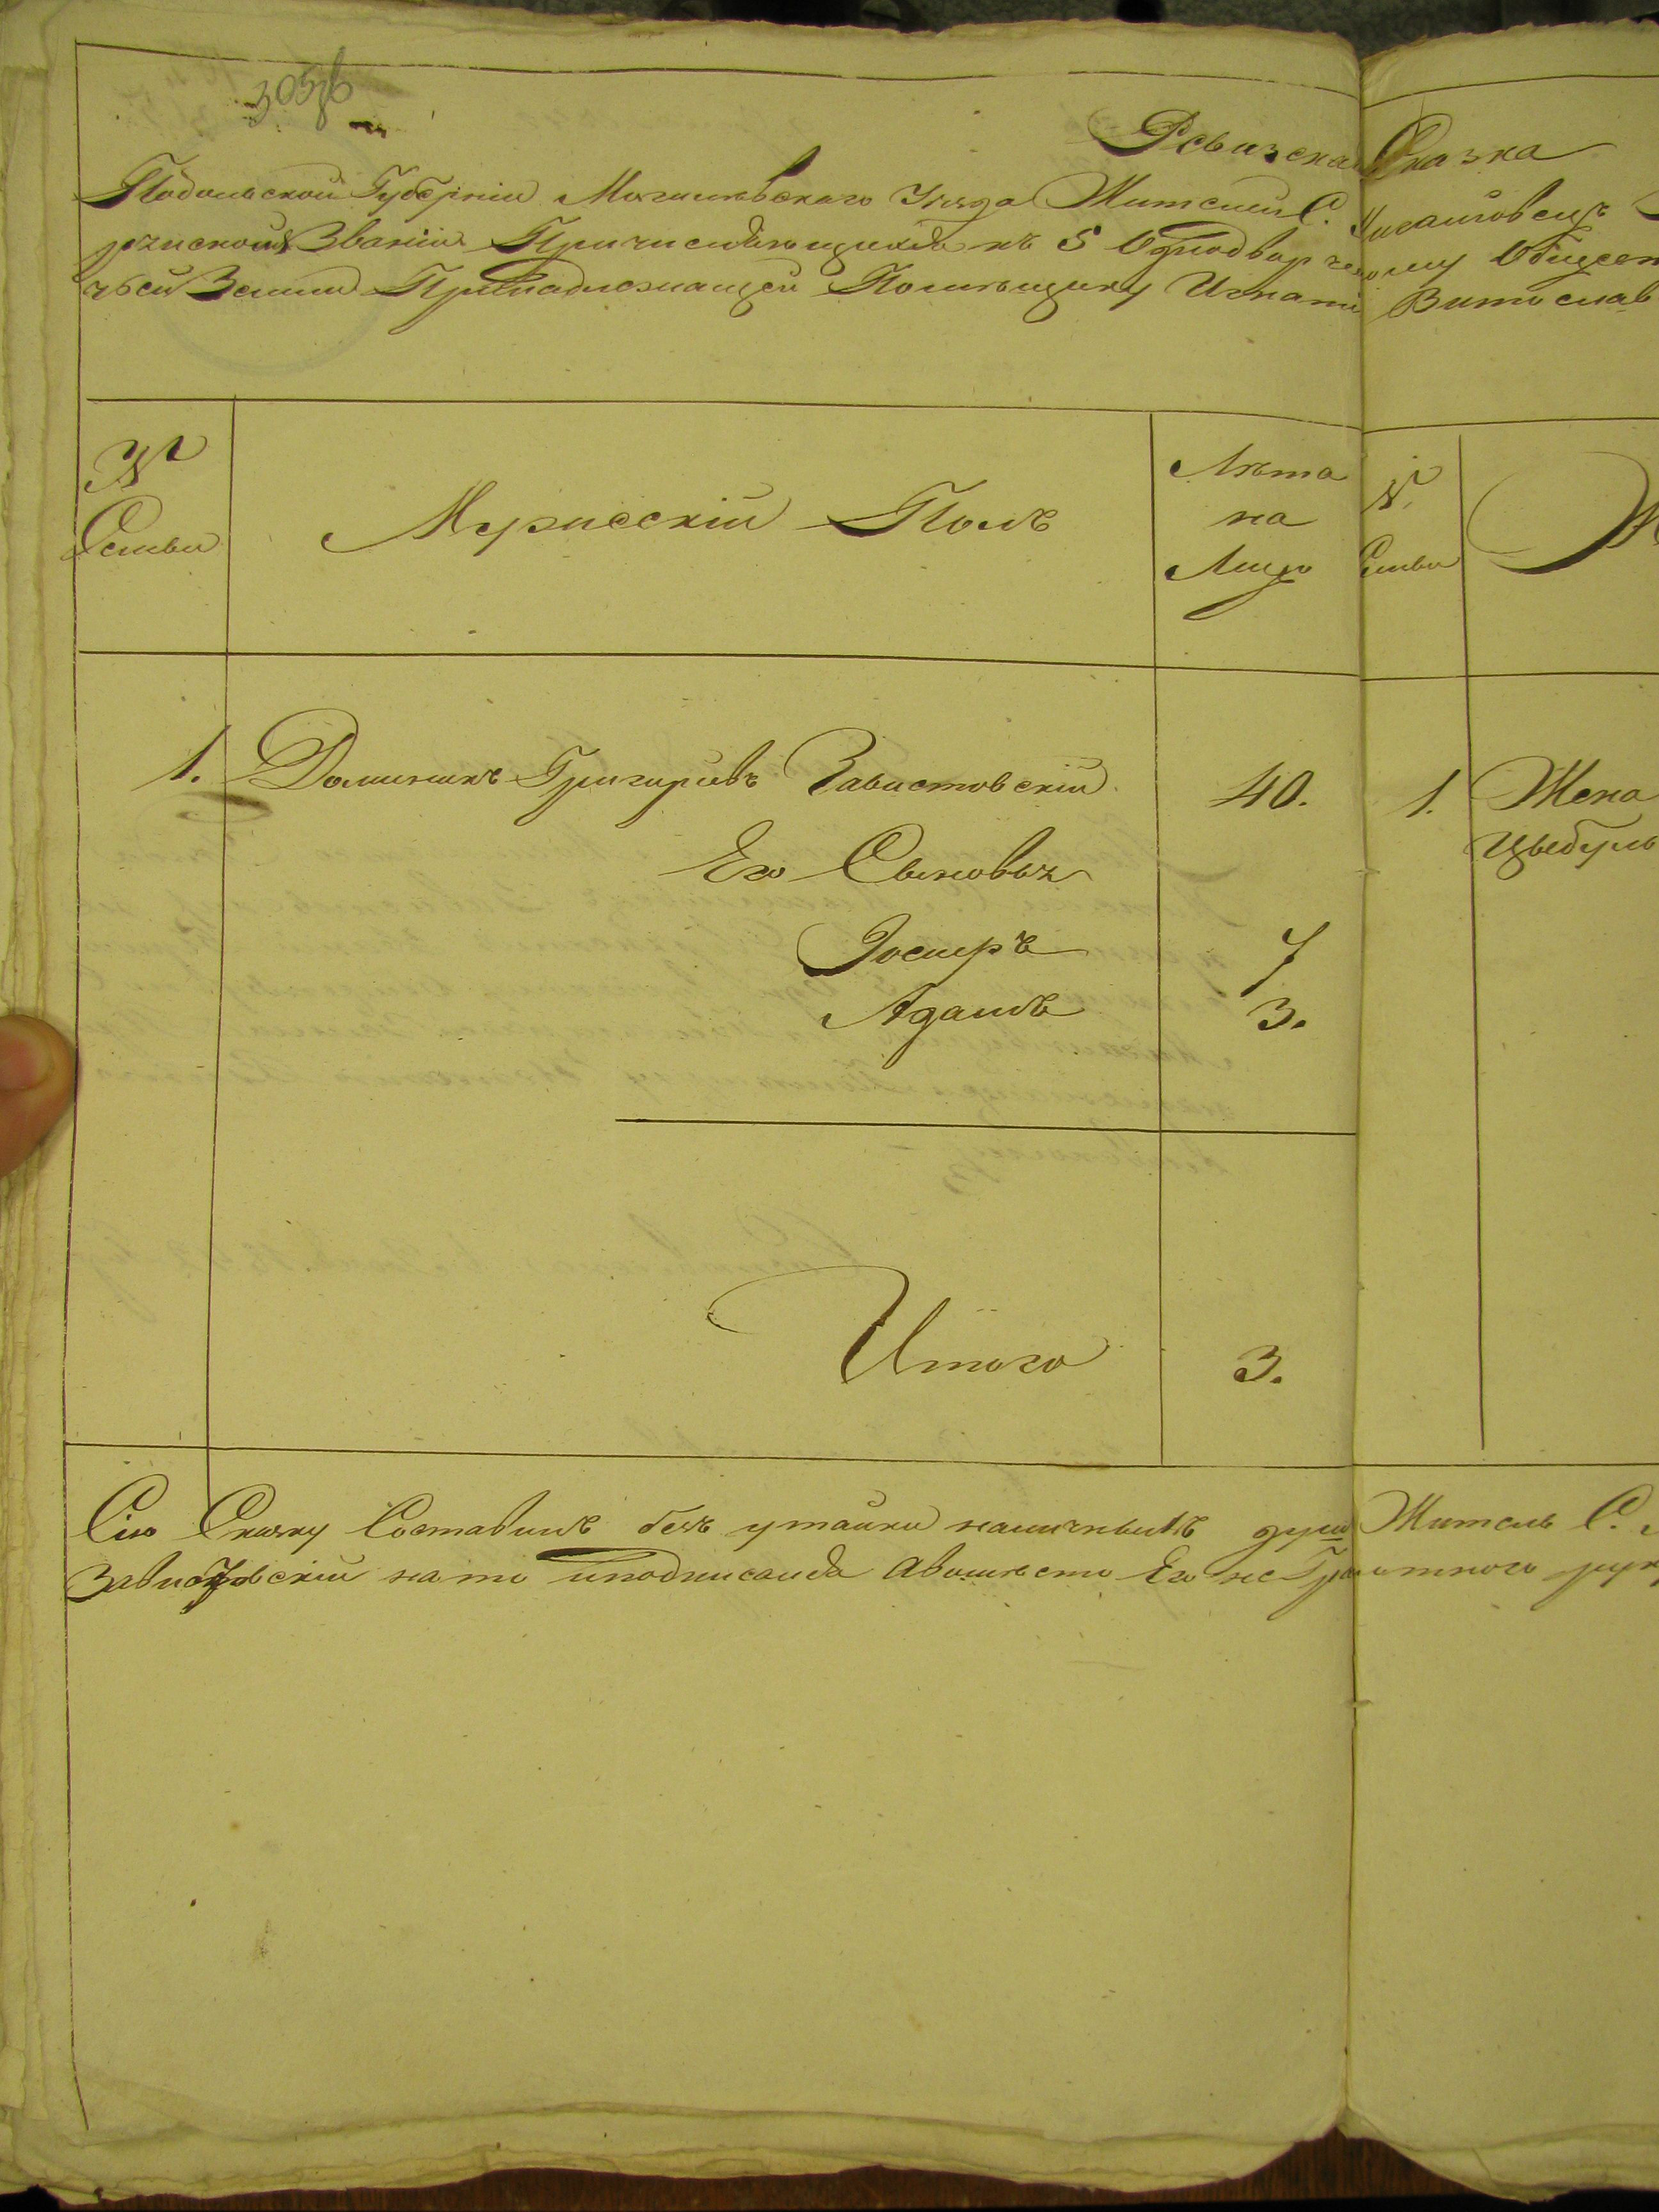 305 об
Ревизская Сказка
Подольской Губерніи Могилевскаго Уезда Жителей С.
званія Причисляющихся къ 5 Однодворческому Общест
Земли Принадлежащей Помещику Витослав
№ Семьи
Мужесскій Полъ
Лѣта на Лицо
№ Семьи
Ж
1. Доминикъ Григорьевъ Завистовскій 40. 1. Жена
Его Сыновья Цыбуль
Іосифъ 7
Адамъ 3.
Итого 3.
Сію Сказку Составилъ безъ утайки наличныхъ душъ Житель С.
Завистовскій на то и подписался Авместо Его не Грамотного рук